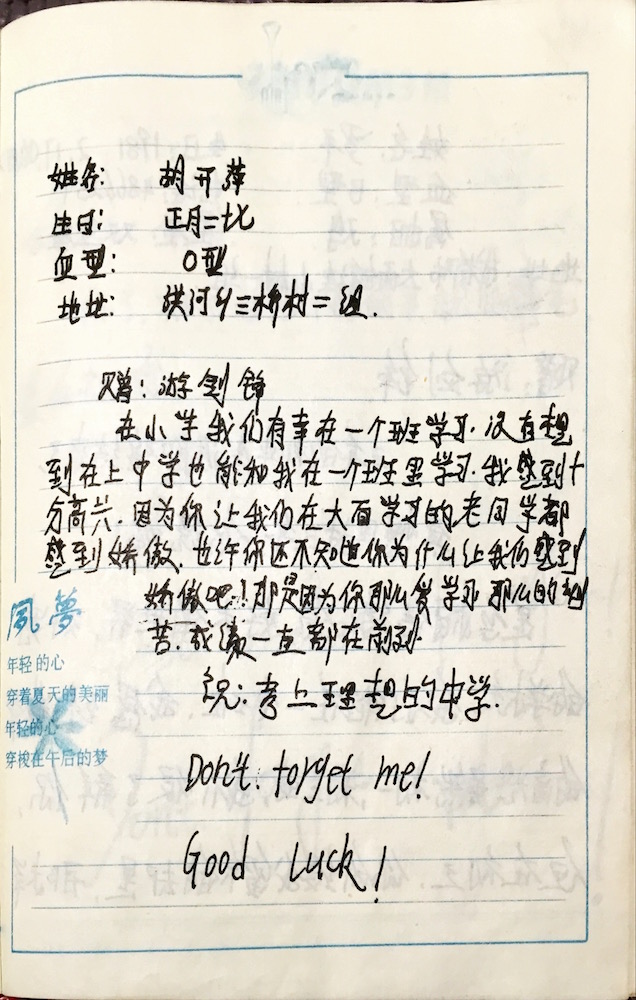 姓名: 胡开萍
生日: 正月二十北
血型: O型
地址: 洪河乡三桥村二组.
赠: 游剑锋
在小学我们有幸在一个班学习.没有想
到在上中学也能和我在一个班里学习.我感到十
分高兴.因为你让我们在大面学习的老同学都
感到娇傲.也许你还不知道你为什么让我们感到
娇傲吧!那是因为你那么爱学习那么的刻
苦.成绩一直都在前列.
祝:考上理想的中学.
Don't forget me!
Good luck!
夙夢
年轻的心
穿着夏天的美丽
年轻的心
穿梭在午后的梦